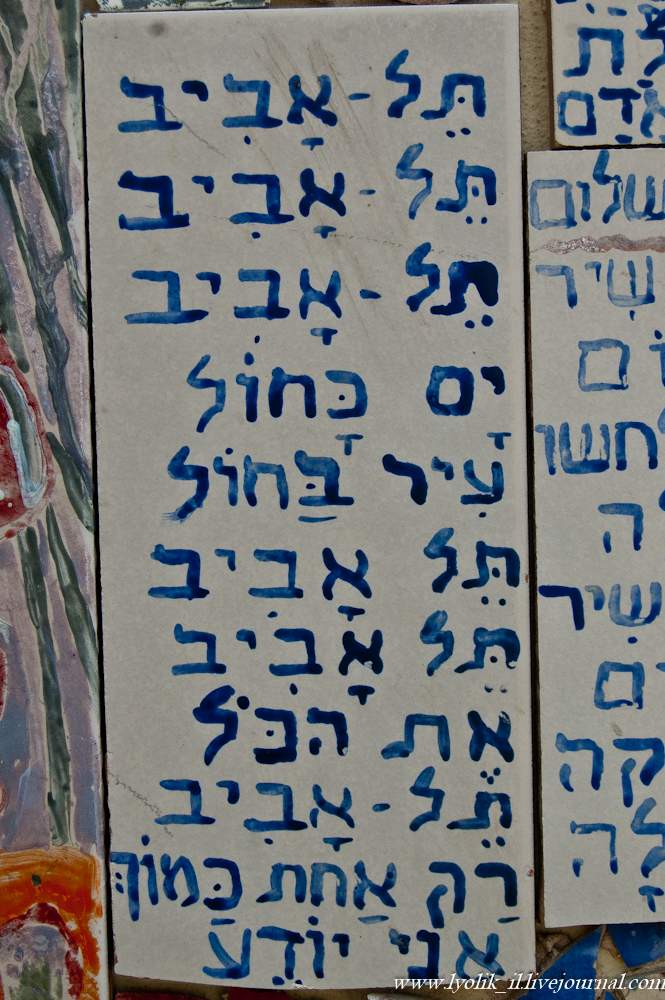 תֵּל-אָבִיב
תֵּל-אָבִיב
תֵּל-אָבִיב
יָם כָּחוֹל
עִיר בַּחוֹל
תֵּל אָבִיב
תֵּל אָבִיב
אֶת הכֹּל
תֵּל-אָבִיב
רַק אַחת כַּמוֹךְ
אֲנִי יוֹדֵעַ
שלום
שִׁיר
שִׁיר
www.lyolik_il.livejournal.com